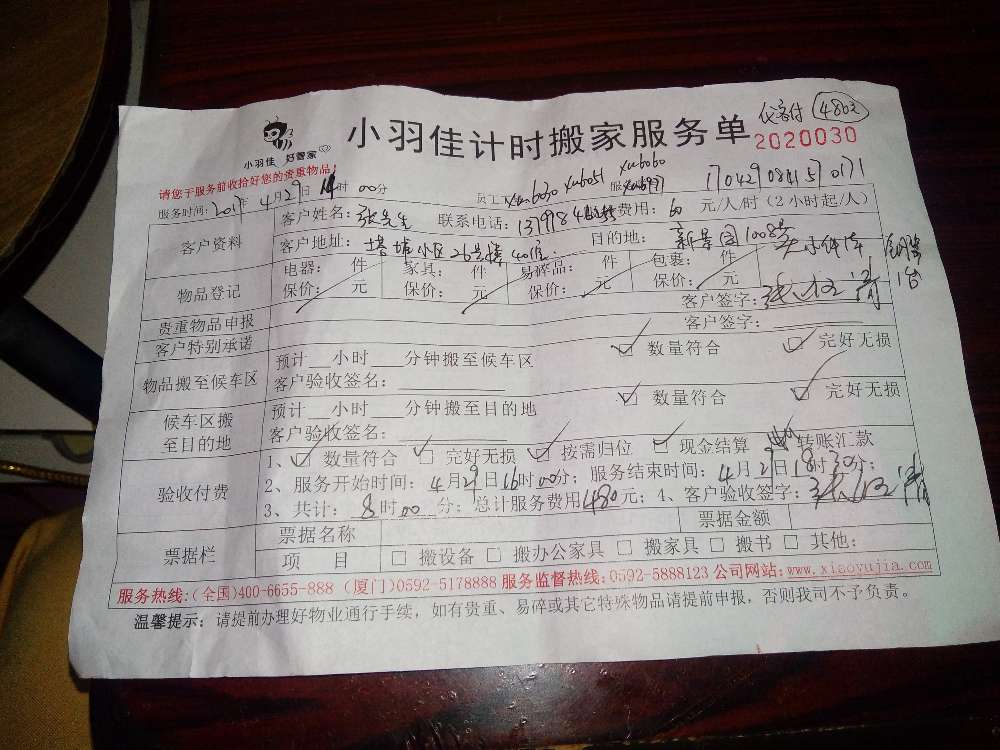 小羽佳 好管家
小羽佳计时搬家服务单
2020030
请您于服务前收拾好您的贵重物品!
服务时间: 4月29日 时00分
xub030 xub051 xub060
1704290841570171
客户资料
客户姓名:张先生 联系电话: 费用:60元/人/时(2小时起/人)
客户地址:塔埔小区26号楼401 目的地:新景园1008号
物品登记
电器: 件 家具: 件 易碎品: 件 包裹: 件
保价: 元 保价: 元 保价: 元 保价: 元
贵重物品申报 客户签字:
客户特别承诺 客户签字:
物品搬至候车区
预计__小时___分钟搬至候车区 ☑数量符合 ☑完好无损
客户验收签名:
候车区搬
至目的地
预计__小时___分钟搬至目的地 ☑数量符合 ☑完好无损
客户验收签名:
验收付费
1、☑数量符合 ☑完好无损 ☑按需归位 ☑现金结算 转账汇款
2、服务开始时间:4月29日16时00分;服务结束时间:4月29日18时30分;
3、共计:8时00分;总计服务费用480元;4、客户验收签字:
票据栏
票据名称 票据金额
项 目 □搬设备 □搬办公家具 □搬家具 □搬书 □其他:
服务热线:(全国)400-6655-888 (厦门)0592-5178888 服务监督热线:0592-5888123 公司网站:www.xiaoyujia.com
温馨提示:请提前办理好物业通行手续,如有贵重、易碎或其它特殊物品请提前申报,否则我司不予负责。